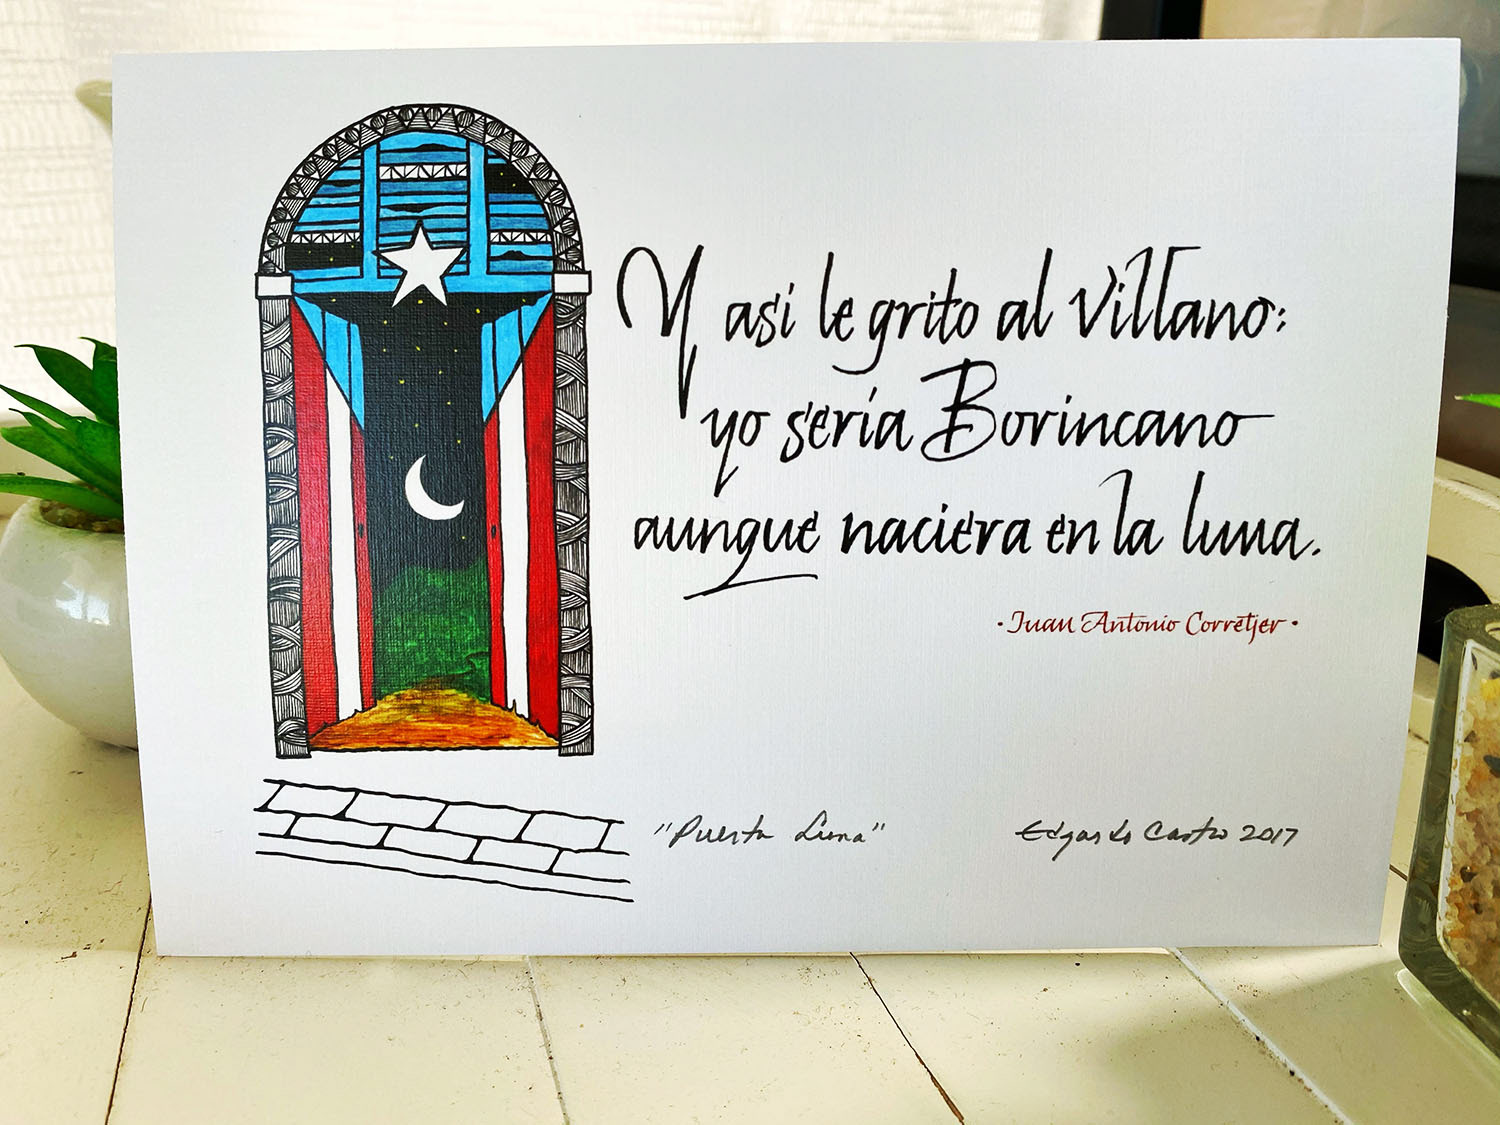 Y asi le grito al Villano:
yo sería Borincano
aunque naciera en la luna.
·Juan Antonio Corretjer·
"Puerta Luna"
Edgardo Castro 2017